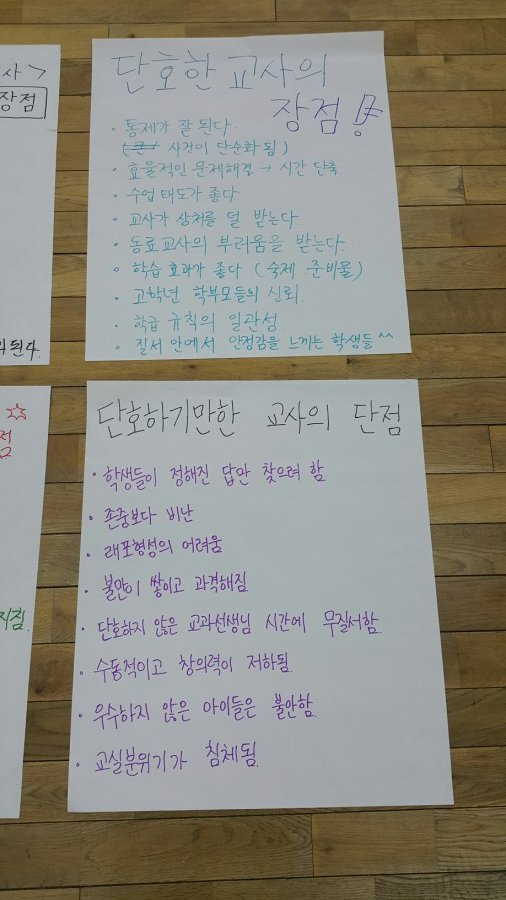 사>
장점
리된다.
점
지짐.
단호한 교사의
장점!
· 통제가 잘 된다
( 사전이 단순화됨 )
· 효율적인 문제해결 → 시간 단축
· 수업 태도가 좋다
· 교사가 상처를 덜 받는다.
· 동료교사의 부러움을 받는다.
· 학습 효과가 좋다 ( 숙제. 준비물)
· 고학년 학부모들의 신뢰.
· 학급 규칙의 일관성.
· 질서 안에서 안정감을 느끼는 학생들^^
단호하기만한 교사의 단점
· 학생들이 정해진 답만 찾으려 함
· 존중보다 비난
· 래포형성의 어려움
· 불만이 쌓이고 과격해짐.
· 단호하지 않은 교과선생님 시간에 무질서함.
· 수동적이고 창의력이 저하됨.
· 우수하지 않은 아이들은 불안함.
· 교실분위기가 침체됨.